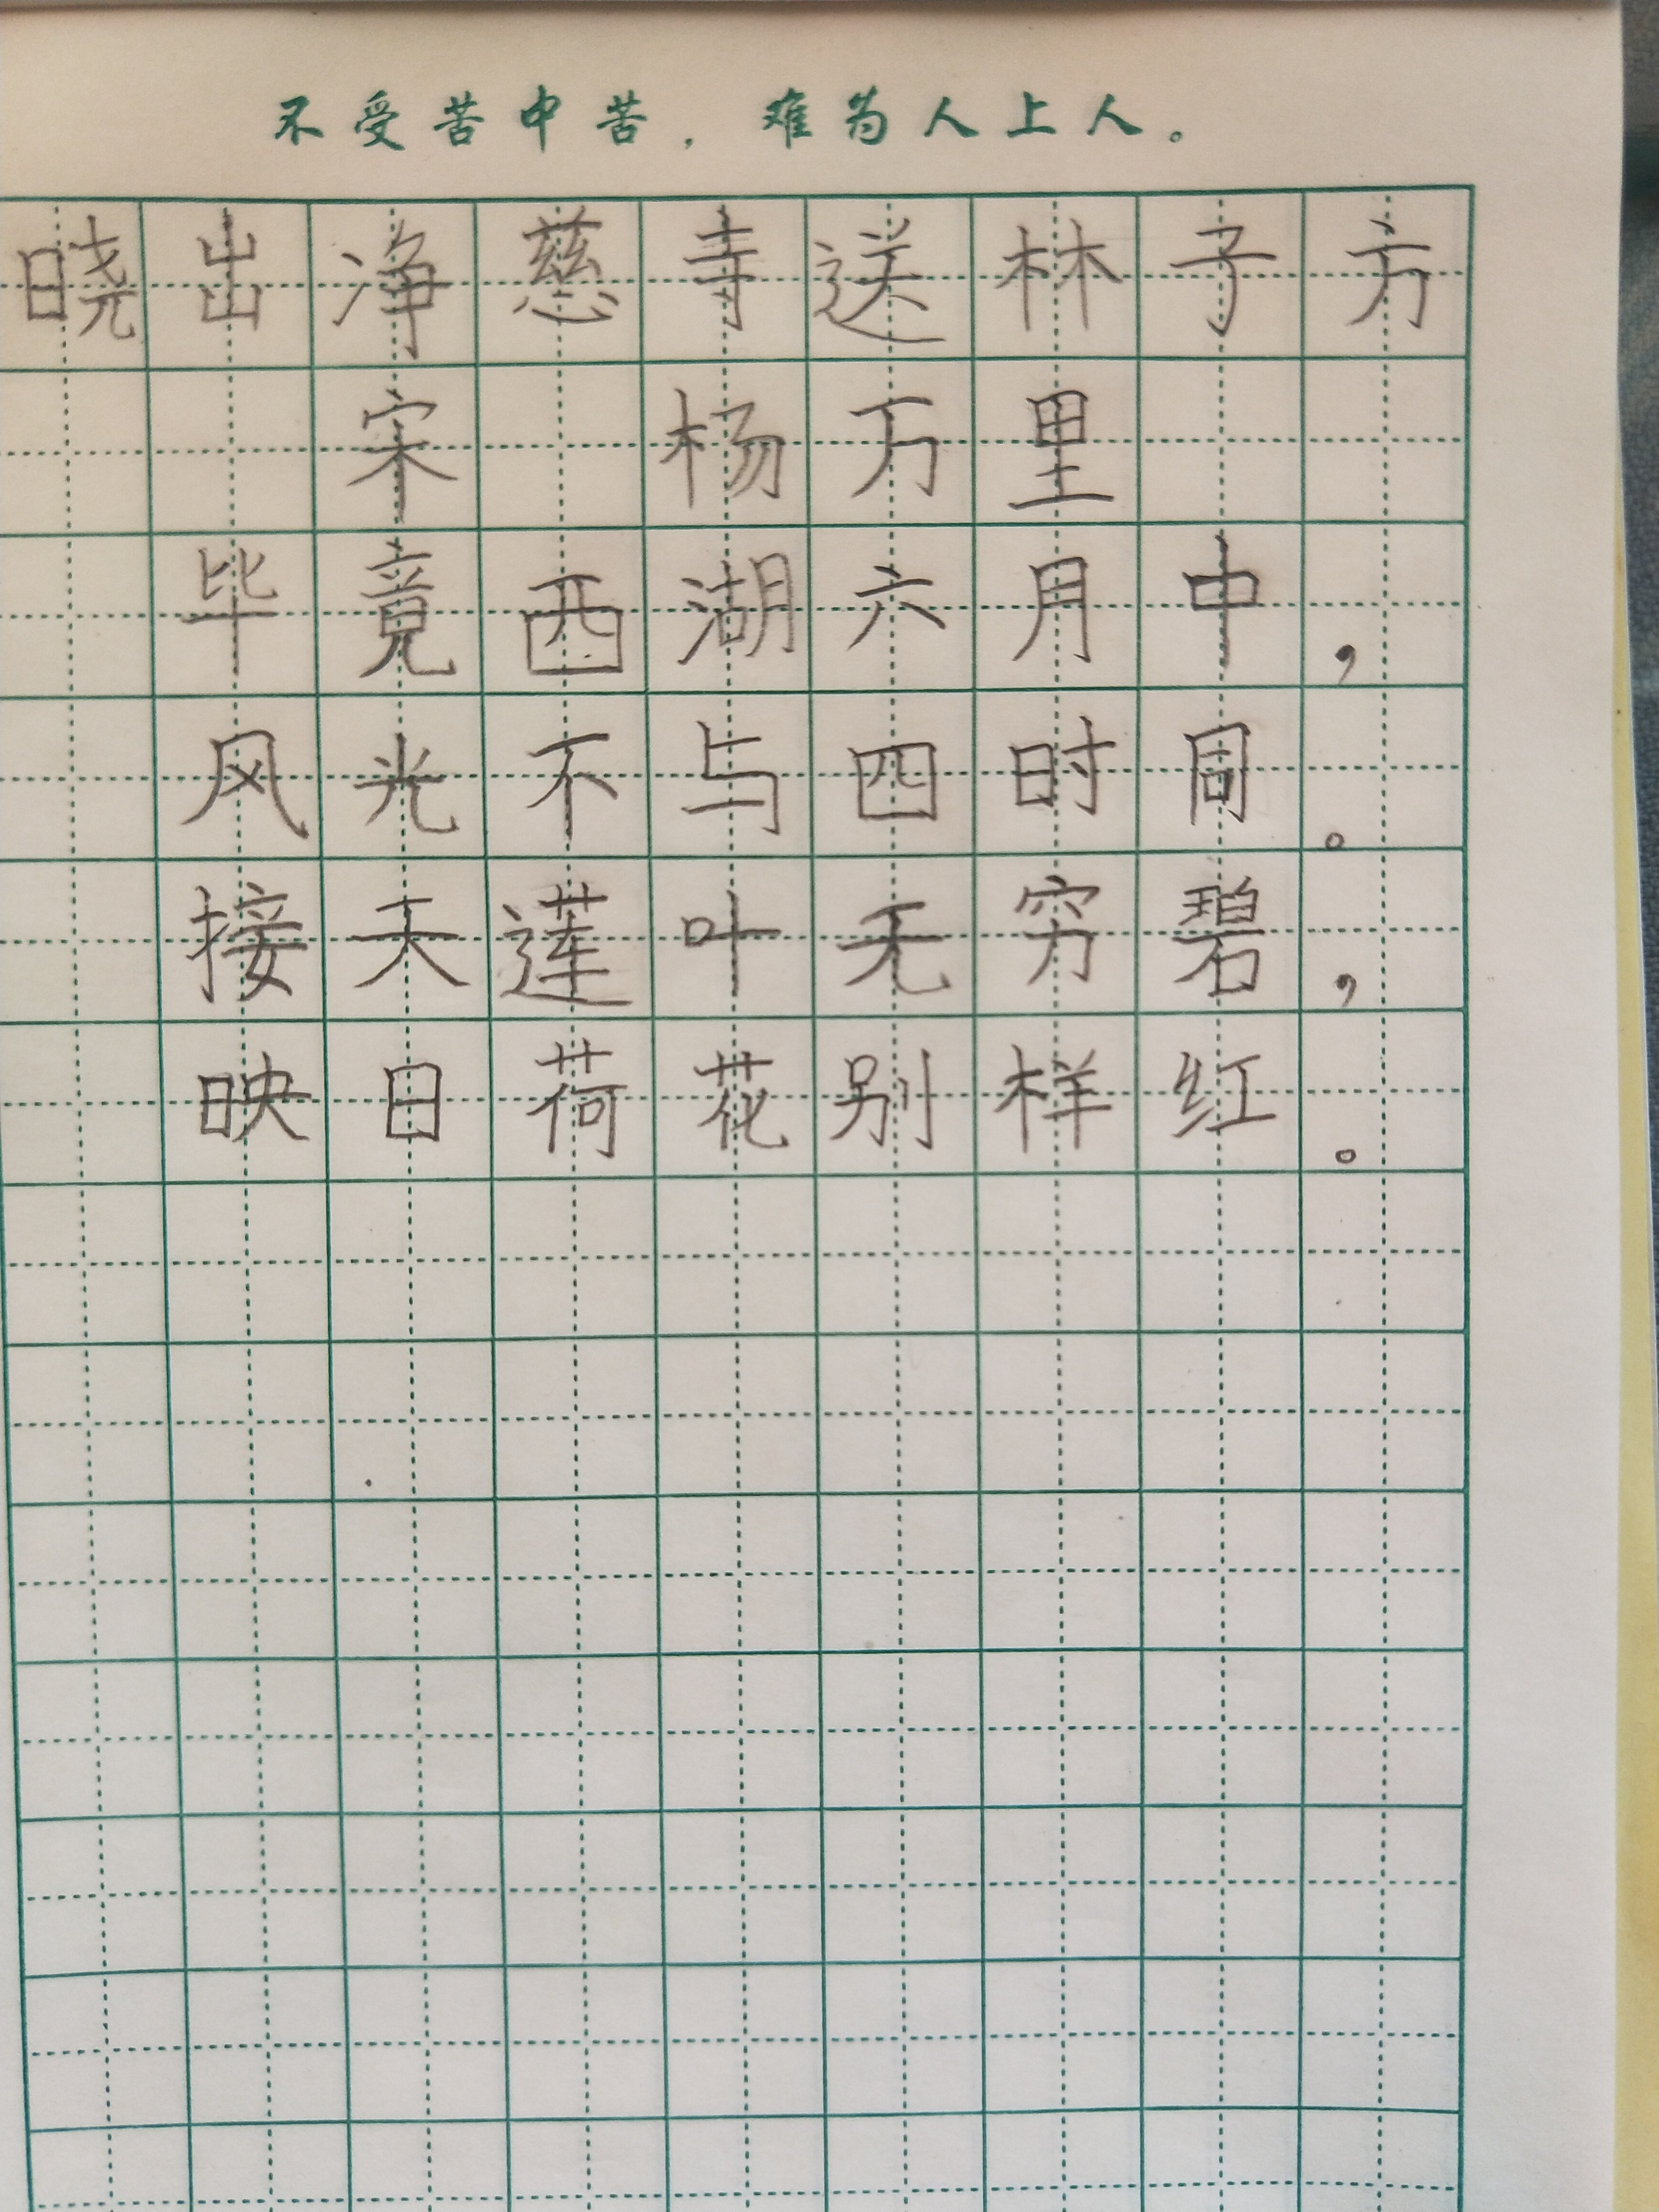 不受苦中苦，难为人上人。
晓出净慈寺送林子方
宋 杨万里
毕竟西湖六月中，
风光不与四时同。
接天莲叶无穷碧，
映日荷花别样红。